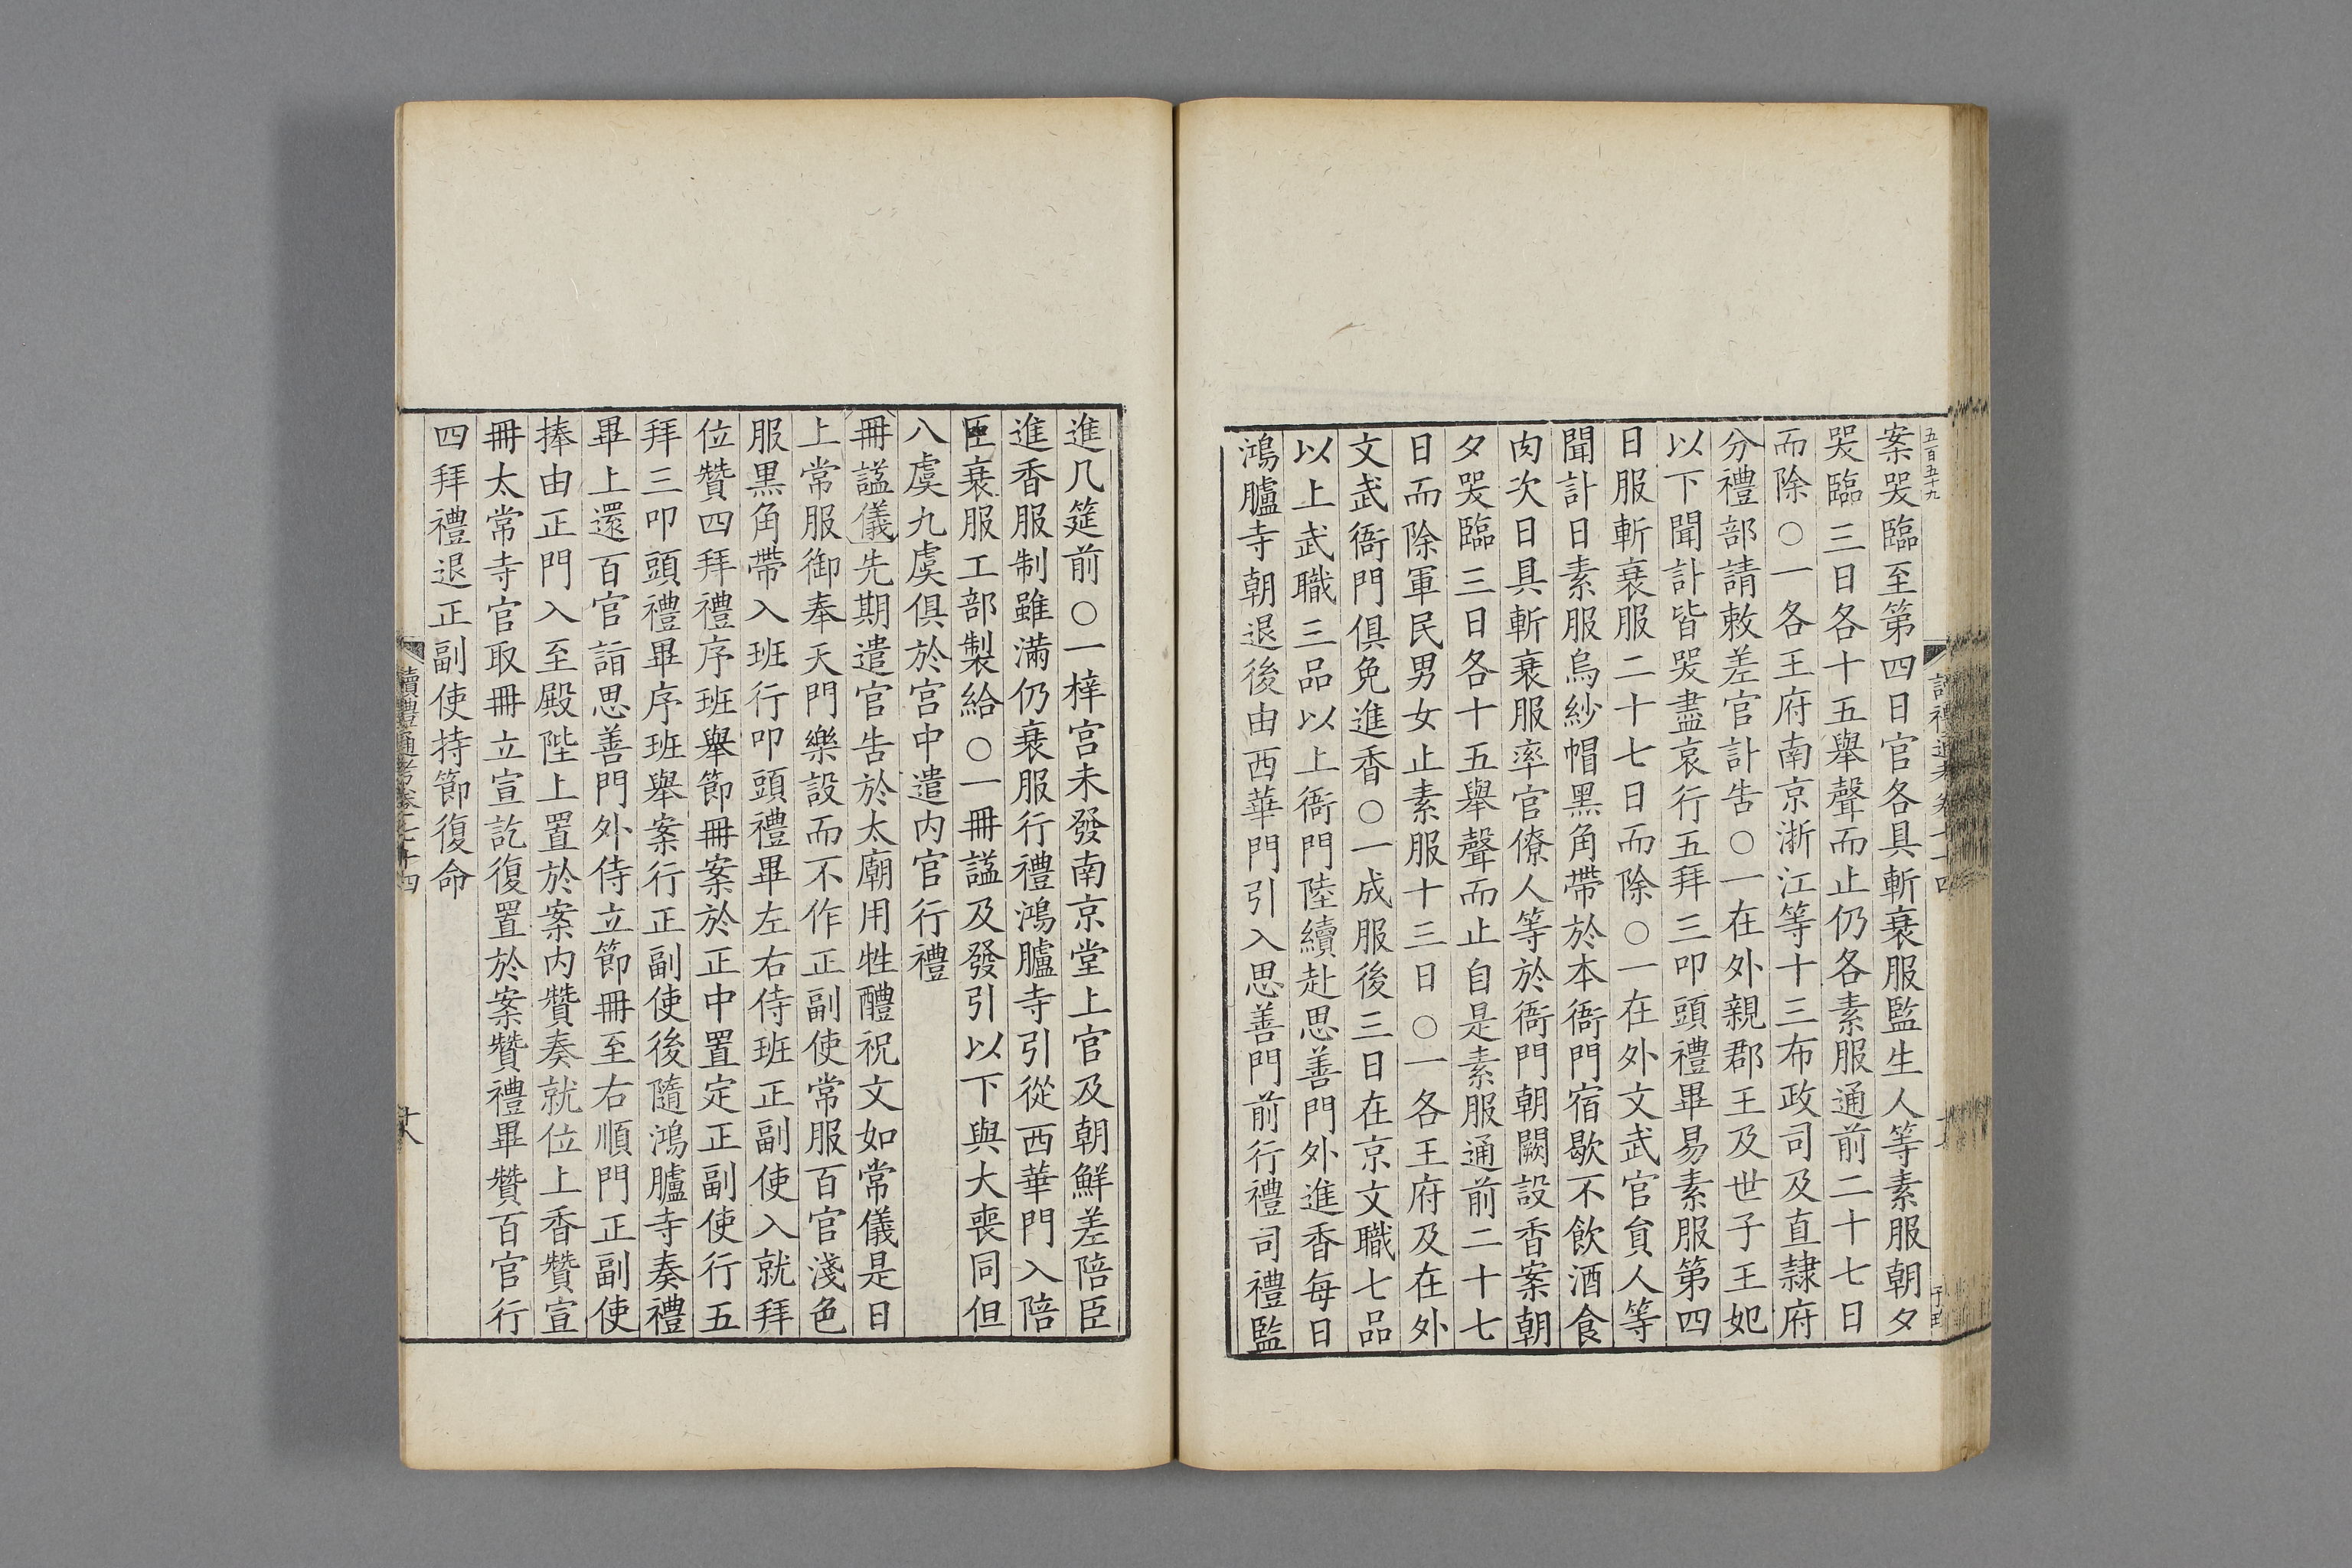 五百五十九
案哭臨至第四日官各具斬衰服監生人等素服朝夕
哭臨三日各十五舉聲而止仍各素服通前二十七日
而除○一各王府南京浙江等十三布政司及直隸府
分禮部請敕差官訃告○一在外親郡王及世子王妃
以下聞訃皆哭盡哀行五拜三叩頭禮畢易素服第四
日服斬衰服二十七日而除○一在外文武官貟人等
聞訃日素服烏紗帽黑角帶於本衙門宿歇不飲酒食
肉次日具斬衰服率官僚人等於衙門朝闕設香案朝
夕哭臨三日各十五舉聲而止自是素服通前二十七
日而除軍民男女止素服十三日○一各王府及在外
文武衙門俱免進香○一成服後三日在京文職七品
以上武職三品以上衙門陸續赴思善門外進香每日
鴻臚寺朝退後由西華門引入思善門前行禮司禮監
進几筵前○一梓宮未發南京堂上官及朝鮮差陪臣
進香服制雖滿仍衰服行禮鴻臚寺引從西華門入陪
臣衰服工部製給○一冊謚及發引以下與大喪同但
八虞九虞俱於宮中遣內官行禮
冊謚儀先期遣官告於太廟用牲醴祝文如常儀是日
上常服御奉天門樂設而不作正副使常服百官淺色
服黑角帶入班行叩頭禮畢左右侍班正副使入就拜
位贊四拜禮序班舉節冊案於正中置定正副使行五
拜三叩頭禮畢序班舉案行正副使後隨鴻臚寺奏禮
畢上還百官詣思善門外侍立節冊至右順門正副使
捧由正門入至殿陛上置於案內贊奏就位上香贊宣
冊太常寺官取冊立宣訖復置於案贊禮畢贊百官行
四拜禮退正副使持節復命
讀禮通考卷七十四
十八